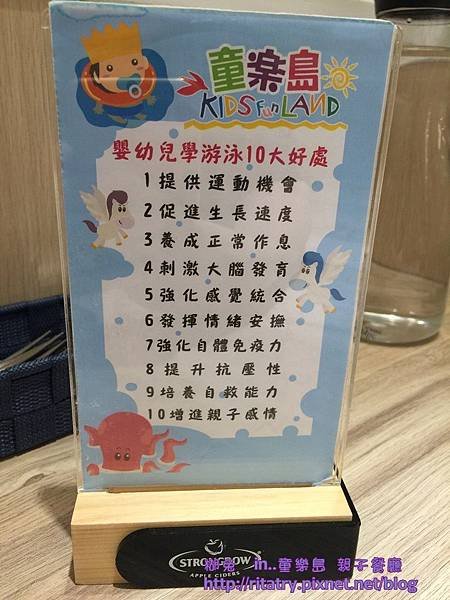 童樂島
KIDS Fun LAND
嬰幼兒學游泳10大好處
1提供運動機會
2促進生長速度
3養成正常作息
4刺激大腦發育
5強化感覺統合
6發揮情緒安撫
7強化自體免疫力
8提升抗壓性
9培養自救能力
10增進親子感情
STRONGBOW
APPLE CIDERS
in..童樂島 親子餐廳
http://ritatry.pixnet.net/blog